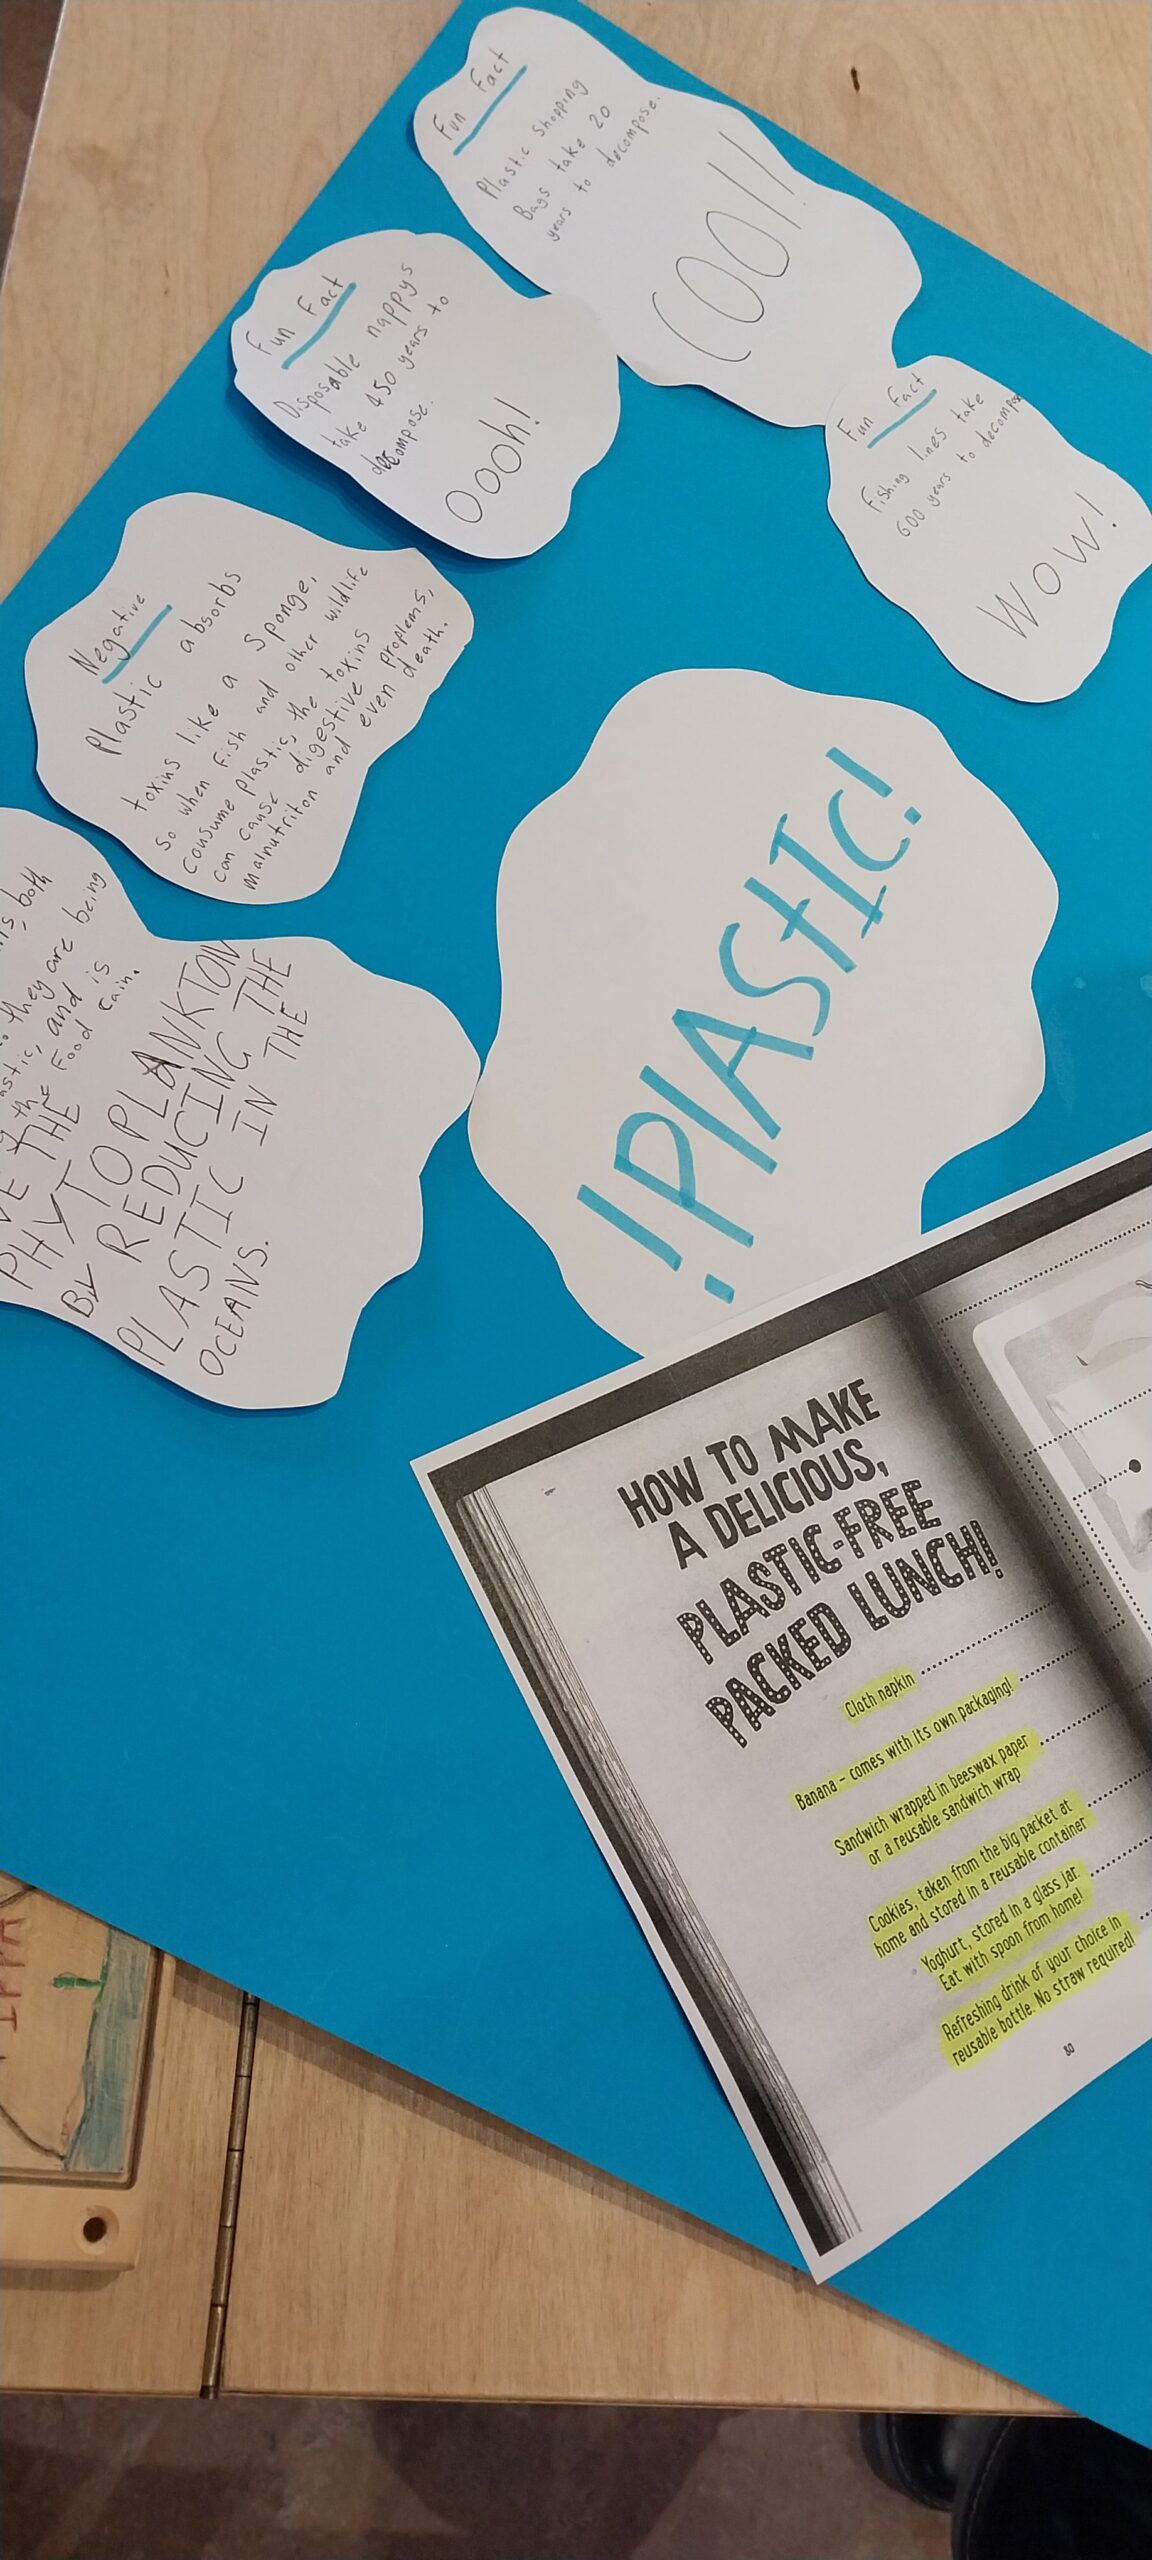 Fun Fact
Plastic Shopping
Bags take 20
years to decompose.
COOl!
Fun Fact
Disposable nappys
take 450 years to
decompose.
Oooh!
Fun Fact
Fishing lines take
600 years to decompose
WOW!
Negative
Plastic absorbs
toxins like a sponge,
so when fish and other wildlife
consume plastic, the toxins
can cause digestive proplems,
malnutriton and even death.
both
they are being
and is
the Food cain.
THE
PHYTOPLANKTON
BY REDUCING THE
PLASTIC IN THE
OCEANS.
!PlAStIC!
HOW TO MAKE
A DELICIOUS,
PLASTIC-FREE
PACKED LUNCH!
Cloth napkin
Banana – comes with its own packaging!
Sandwich wrapped in beeswax paper
or a reusable sandwich wrap
Cookies, taken from the big packet at
home and stored in a reusable container
Yoghurt, stored in a glass jar.
Eat with spoon from home!
Refreshing drink of your choice in
reusable bottle. No straw required!
80